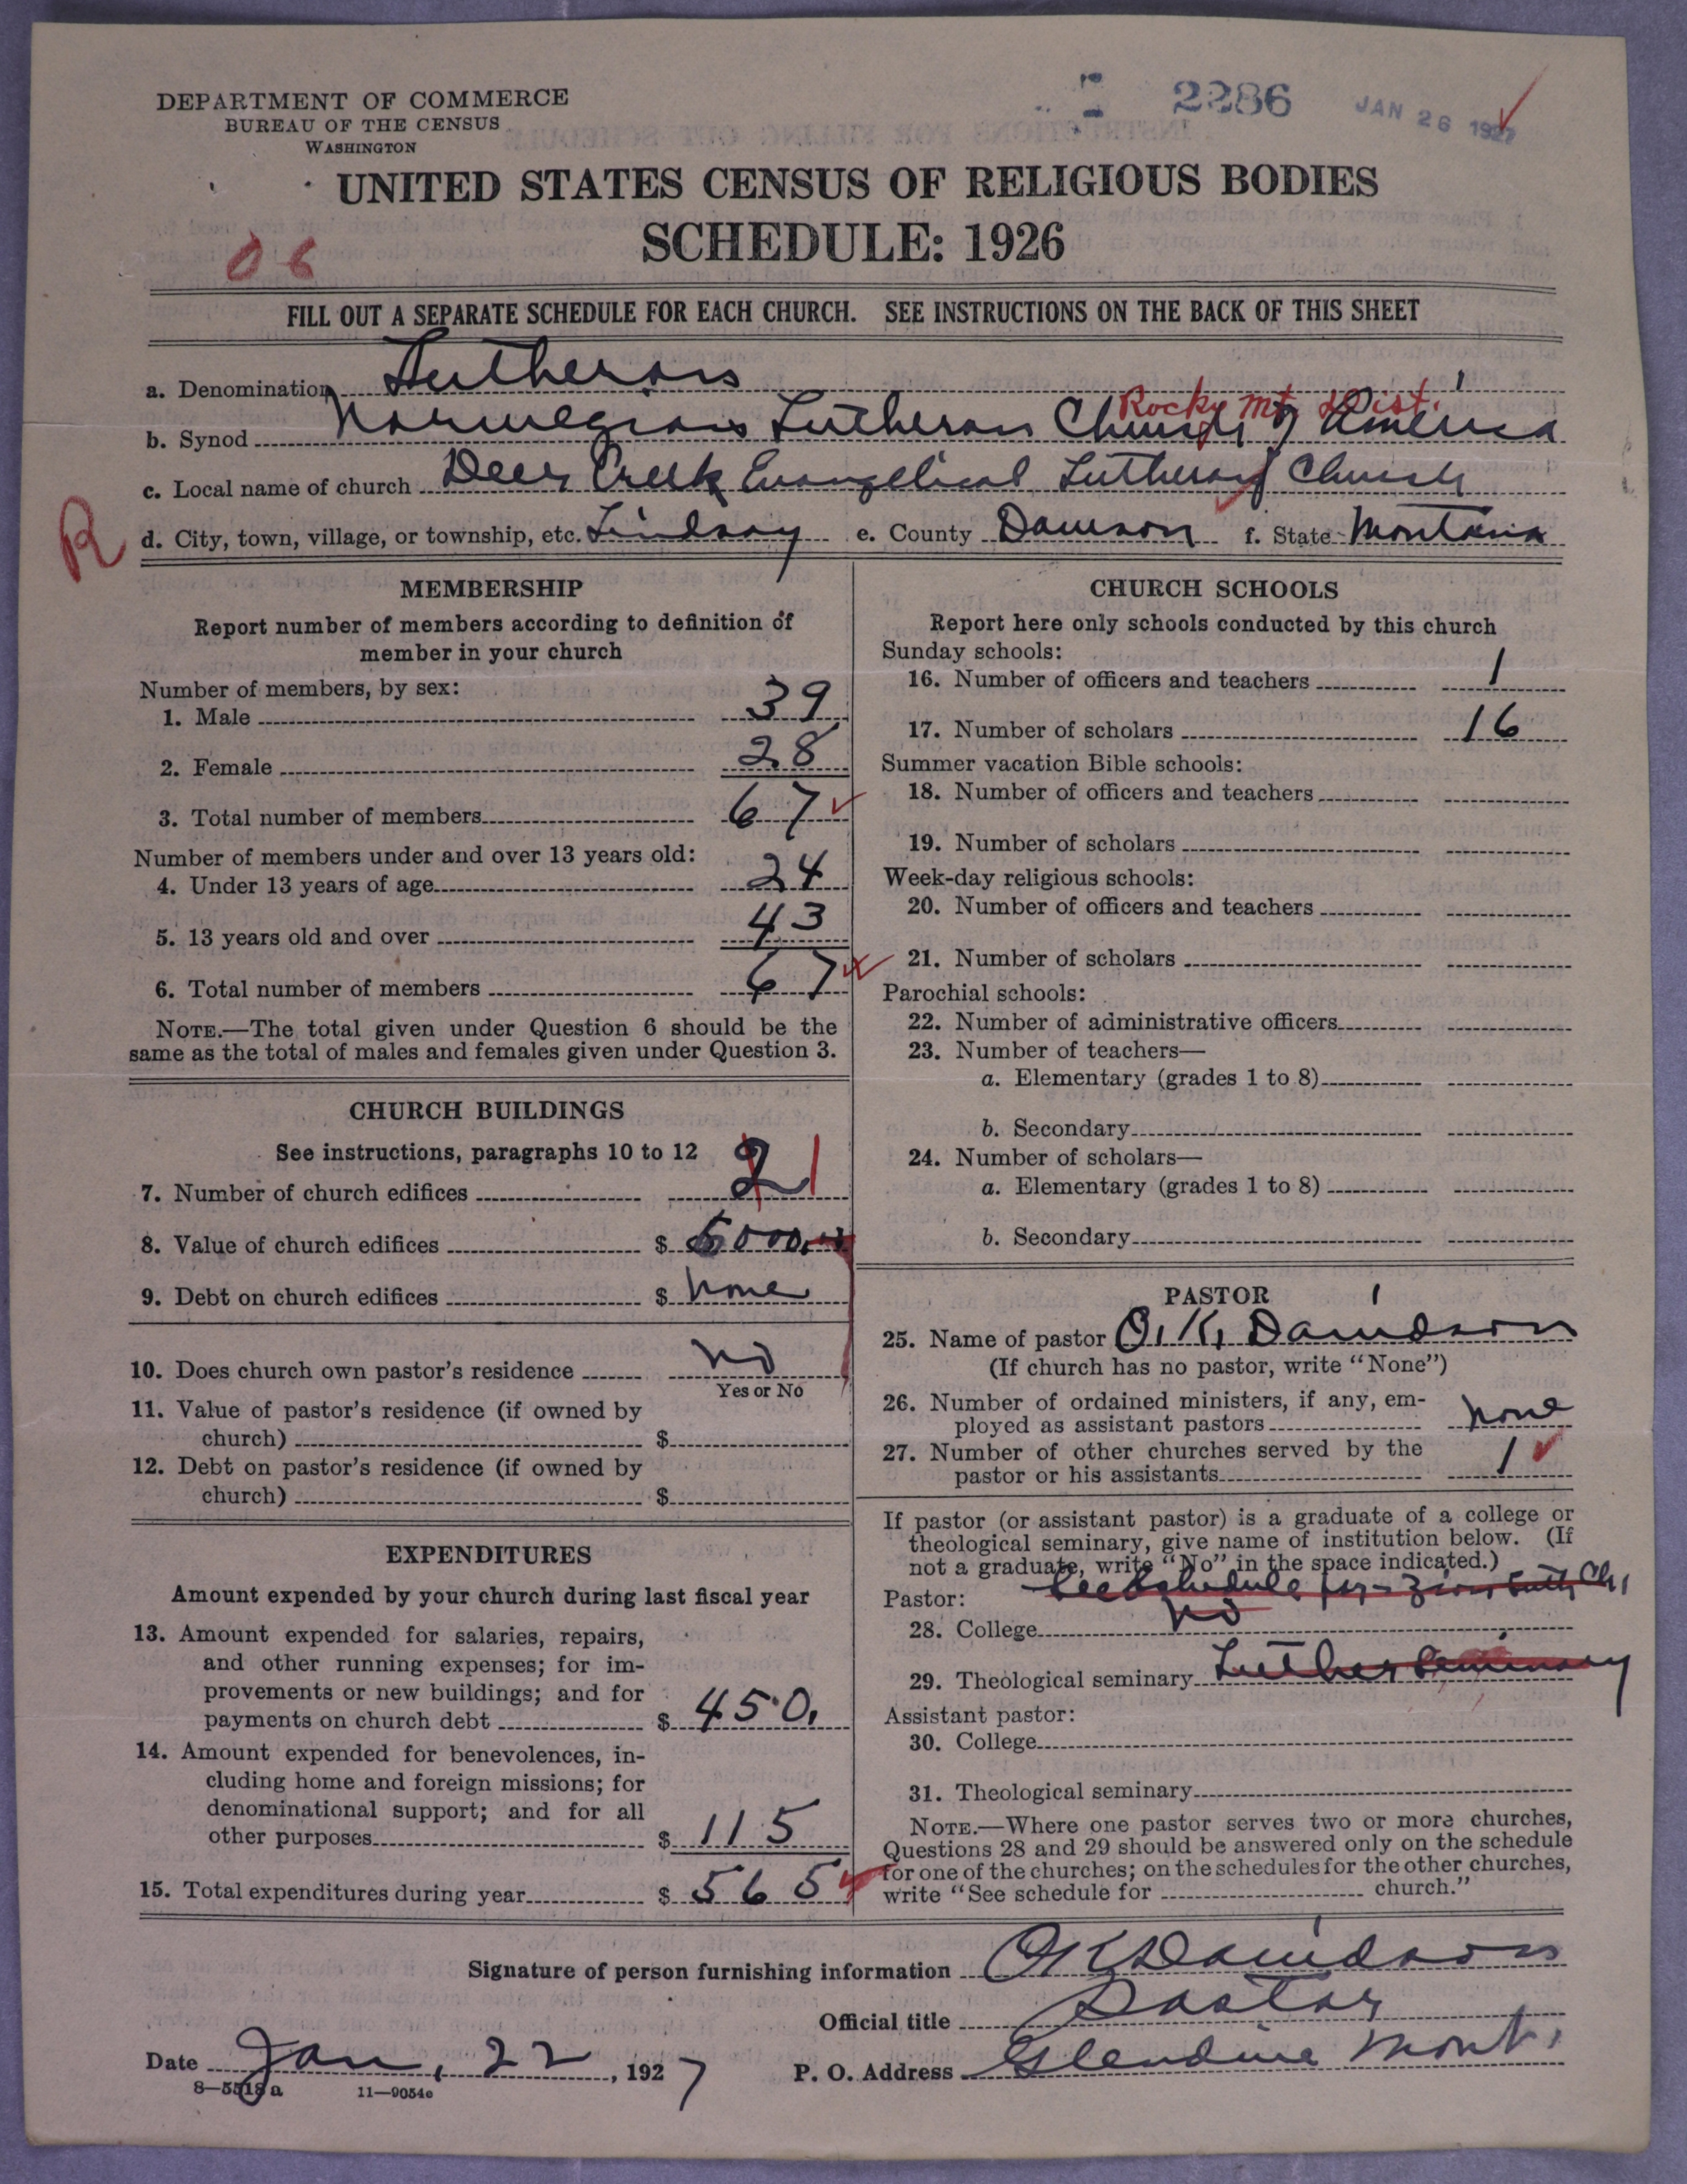 DEPARTMENT OF COMMERCE
BUREAU OF THE CENSUS
WASHINGTON
2286
JAN 26 1927
UNITED STATES CENSUS OF RELIGIOUS BODIES
SCHEDULE: 1926
06
FILL OUT A SEPARATE SCHEDULE FOR EACH CHURCH. SEE INSTRUCTIONS ON THE BACK OF THIS SHEET
a. Denomination Lutheran
Rocky Mt. Dist.
b. Synod Norwegian Lutheran Church of America
c. Local name of church Deer Creek Evangelical Lutheran Church
R
d. City, town, village, or township, etc. Lindsay e. County Dawson f. State Montana
MEMBERSHIP
Report number of members according to definition of
member in your church
Number of members, by sex:
1. Male 39
2. Female 28
3. Total number of members 67
Number of members under and over 13 years old:
4. Under 13 years of age 24
5. 13 years old and over 43
6. Total number of members 67
NOTE.—The total given under Question 6 should be the
same as the total of males and females given under Question 3.
CHURCH BUILDINGS
See instructions, paragraphs 10 to 12
7. Number of church edifices 2 1
8. Value of church edifices $ 5000.
9. Debt on church edifices $ none
10. Does church own pastor's residence no
Yes or No
11. Value of pastor's residence (if owned by
church) $
12. Debt on pastor's residence (if owned by
church) $
EXPENDITURES
Amount expended by your church during last fiscal year
13. Amount expended for salaries, repairs,
and other running expenses; for im-
provements or new buildings; and for
payments on church debt $ 450.
14. Amount expended for benevolences, in-
cluding home and foreign missions; for
denominational support; and for all
other purposes $ 115
15. Total expenditures during year $ 565
CHURCH SCHOOLS
Report here only schools conducted by this church
Sunday schools:
16. Number of officers and teachers 1
17. Number of scholars 16
Summer vacation Bible schools:
18. Number of officers and teachers
19. Number of scholars
Week-day religious schools:
20. Number of officers and teachers
21. Number of scholars
Parochial schools:
22. Number of administrative officers
23. Number of teachers—
a. Elementary (grades 1 to 8)
b. Secondary
24. Number of scholars—
a. Elementary (grades 1 to 8)
b. Secondary
PASTOR
25. Name of pastor O. K. Davidson
(If church has no pastor, write "None")
26. Number of ordained ministers, if any, em-
ployed as assistant pastors none
27. Number of other churches served by the
pastor or his assistants 1
If pastor (or assistant pastor) is a graduate of a college or
theological seminary, give name of institution below. (If
not a graduate, write "No" in the space indicated.)
Pastor: See Schedule for Zion Luth. Ch.
28. College no
29. Theological seminary Luther Seminary
Assistant pastor:
30. College
31. Theological seminary
NOTE.—Where one pastor serves two or more churches,
Questions 28 and 29 should be answered only on the schedule
for one of the churches; on the schedules for the other churches,
write "See schedule for church."
Signature of person furnishing information O K Davidson
Official title Pastor
Date Jan. 22, 1927 P. O. Address Glendive Mont.
8—5518 a 11—9054e